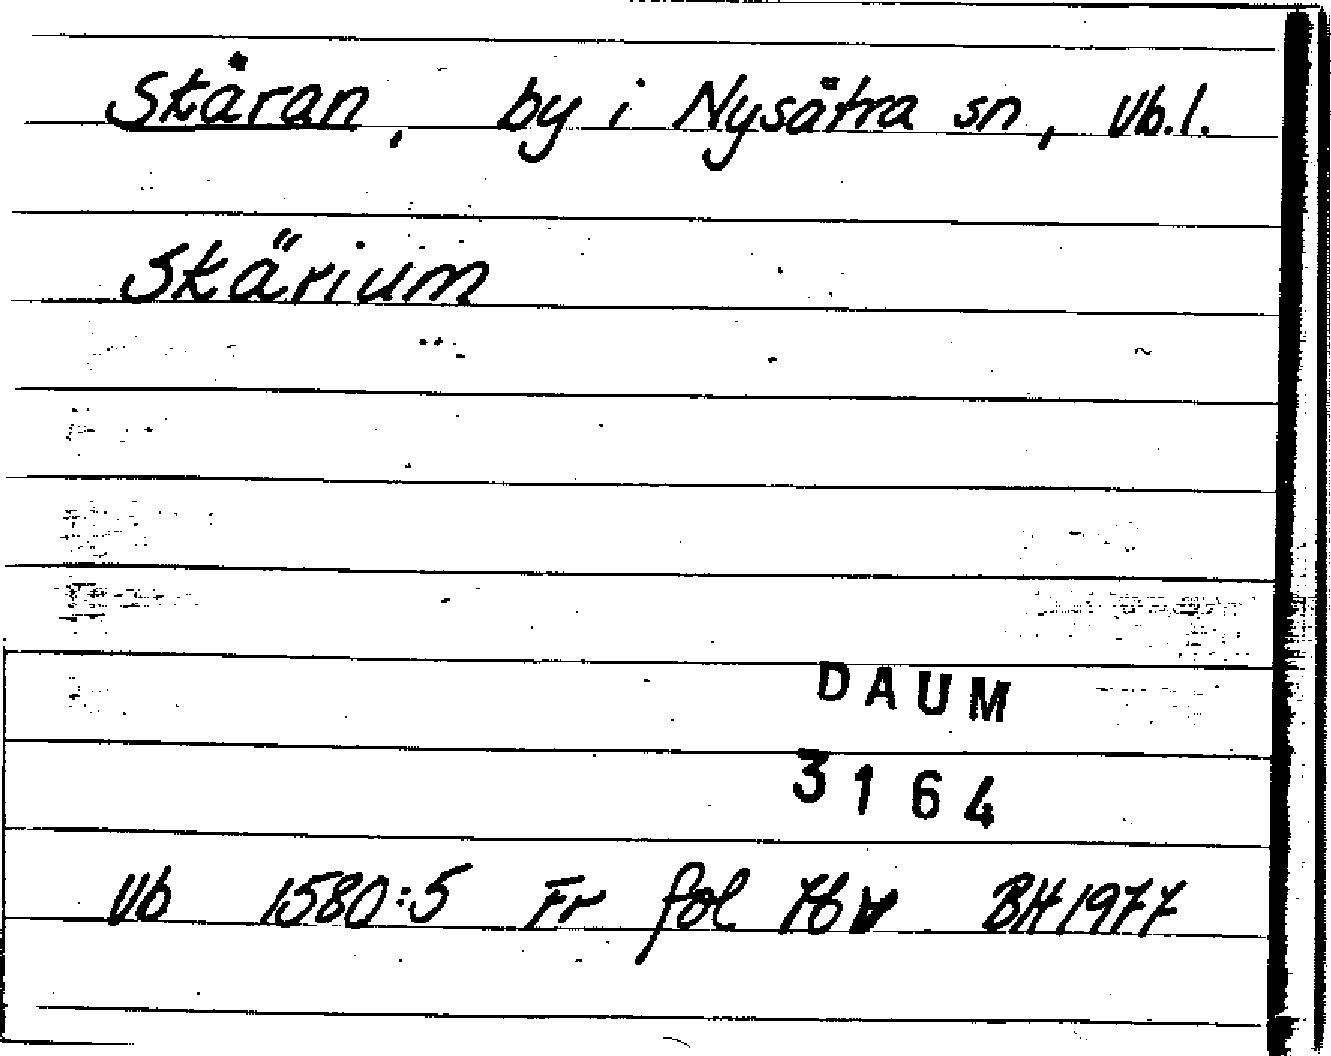 Skäran, by i Nysätra sn, Vb.l.
Skärium
DAUM
3164
Vb 1580:5 Fr fol 76v BH 1977